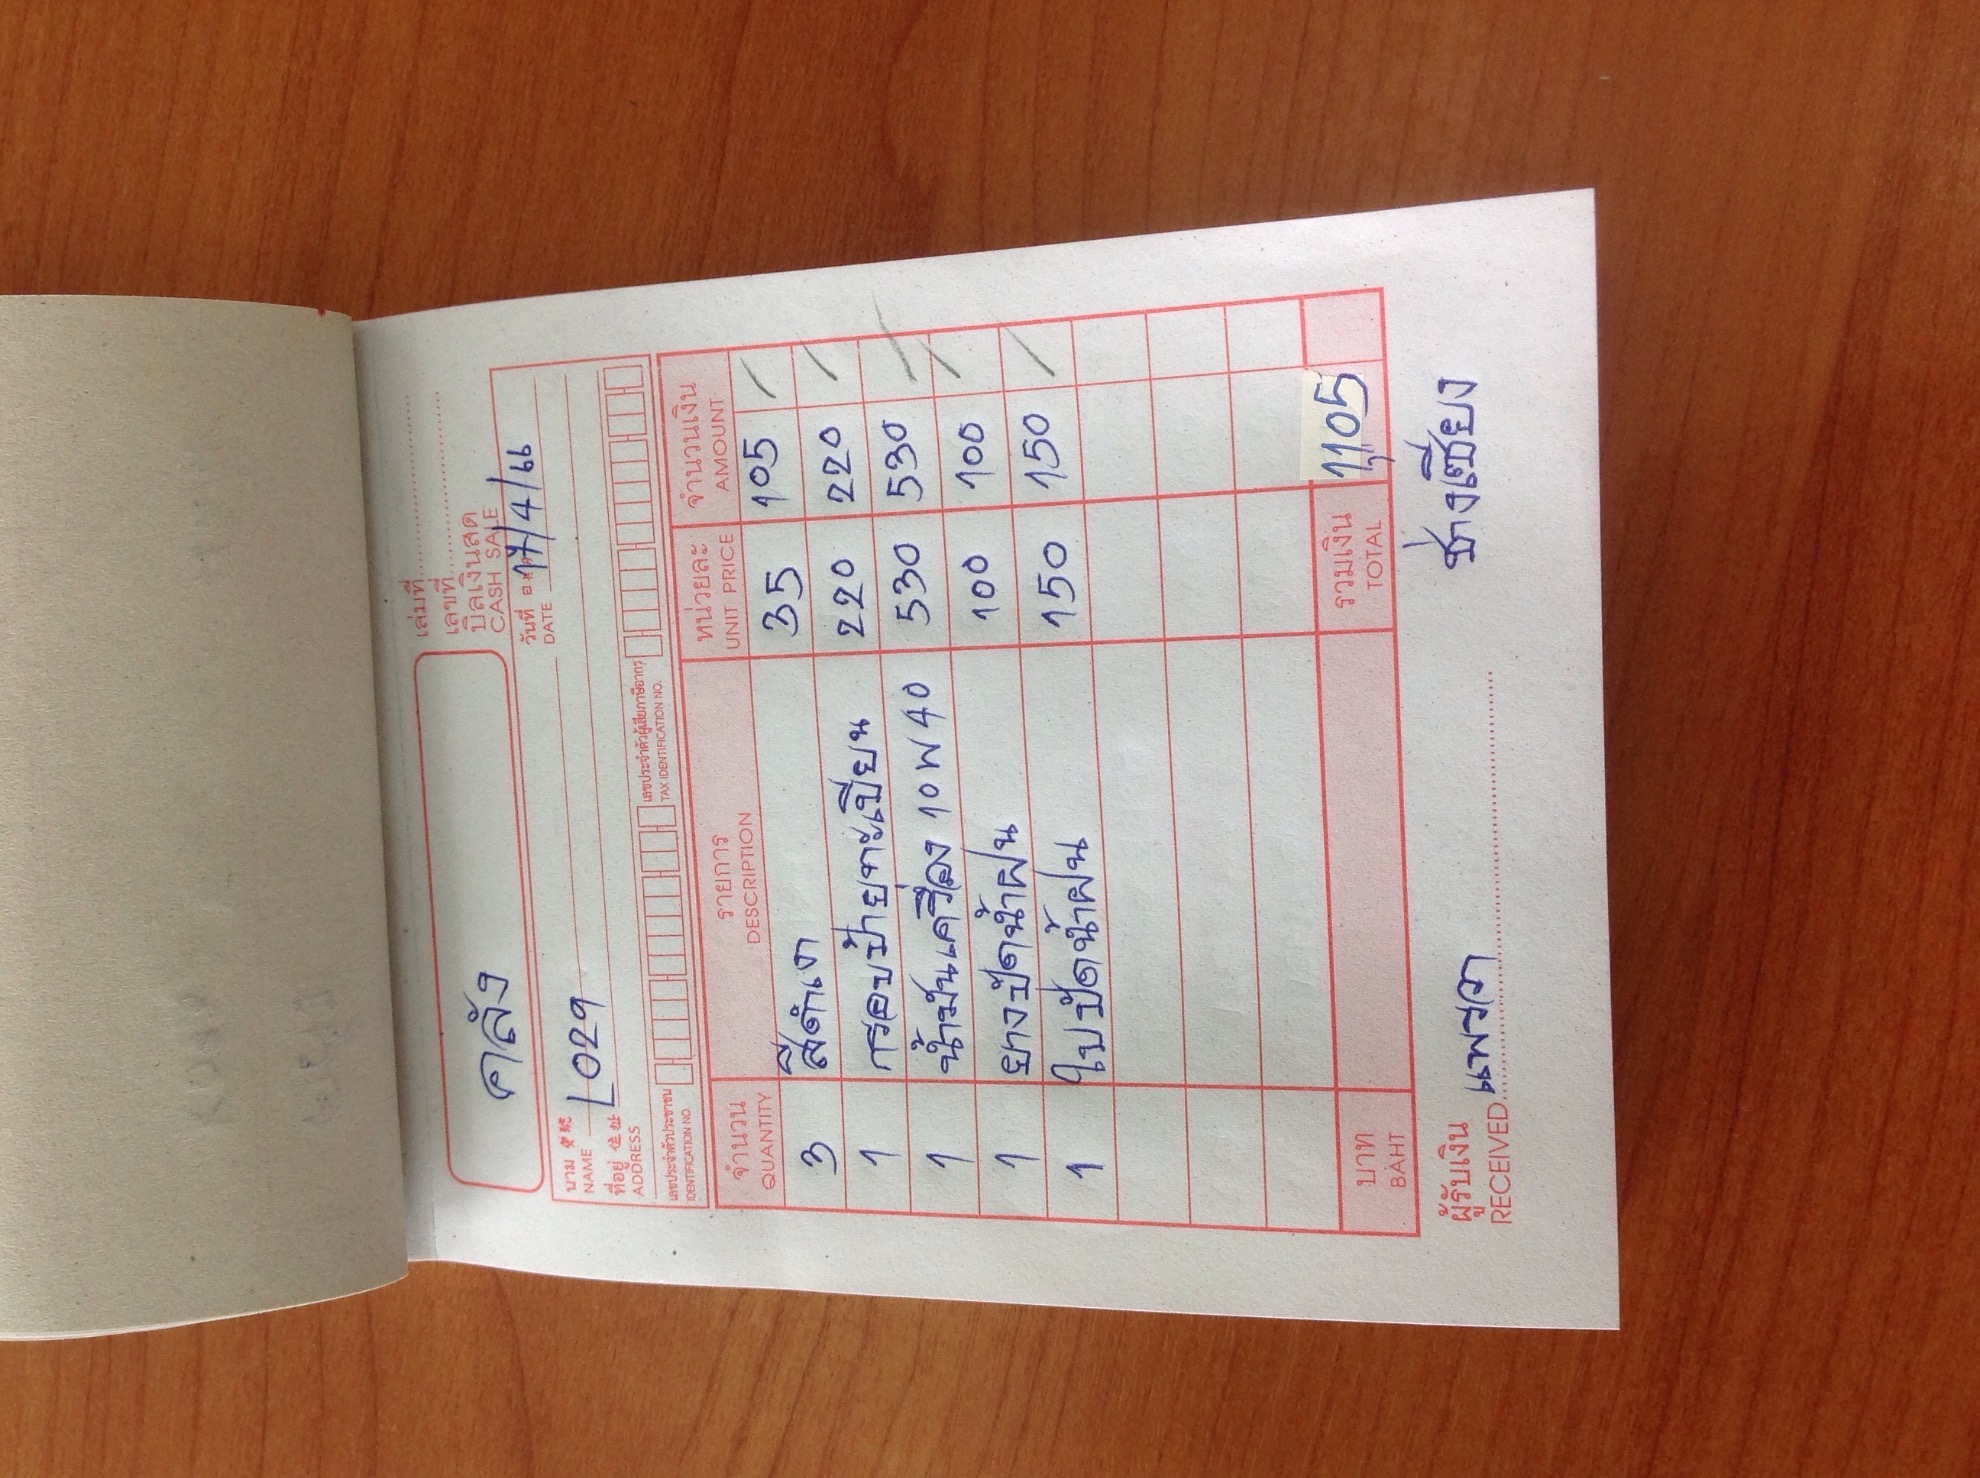 คลัง
เล่มที่
เลขที่
บิลเงินสด
CASH SALE
วันที่ 17/4/66
DATE
นาม
NAME L029
ที่อยู่ 住址
ADDRESS
เลขประจำตัวประชาชน เลขประจำตัวผู้เสียภาษีอากร
IDENTIFICATION NO. TAX IDENTIFICATION NO.
จำนวน รายการ หน่วยละ จำนวนเงิน
QUANTITY DESCRIPTION UNIT PRICE AMOUNT
3 สีดำเงา 35 105
1 กรอบป้ายทะเบียน 220 220
1 น้ำมันเครื่อง 10W40 530 530
1 ยางปัดน้ำฝน 100 100
1 ใบปัดน้ำฝน 150 150
บาท รวมเงิน 1,105
BAHT TOTAL
ผู้รับเงิน แพรวา ช่างเชียง
RECEIVED